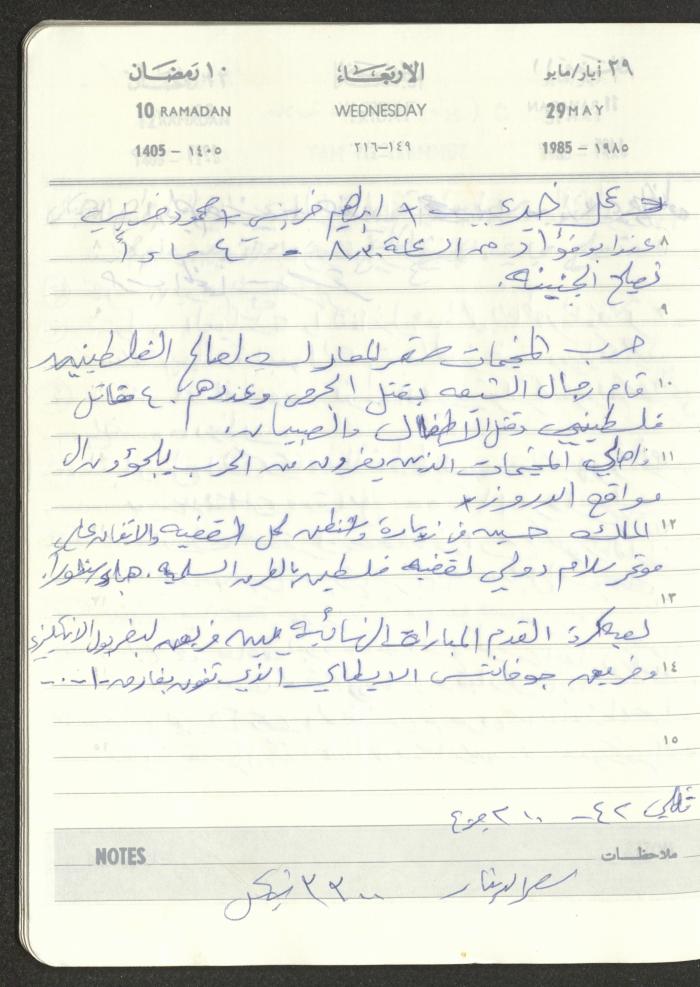 ٢٩ أيار/مايو الأربعاء ١٠ رمضان
29 MAY WEDNESDAY 10 RAMADAN
1985 – ١٩٨٥ ١٤٩–٢١٦ 1405 – ١٤٠٥
عمل + ابراهيم خريس + محمود خريس
٨ عند ابو فؤاد من الساعة ٨٫٣٠ - ٤ مساءً
تصليح الجنينه.
٩
حرب المخيمات المعارك لصالح الفلسطينيين
١٠ قام رجال الشيعه بقتل الجرحى وعددهم ٤٠ مقاتل
فلسطيني وقتل الاطفال والصبيان.
١١ واهالي المخيمات الذين يفرون من الحرب يلجؤون الى
مواقع الدروز
١٢ الملك حسين في زيارة واشنطن لحل القضيه والاتفاق على
مؤتمر سلام دولي لقضية فلسطين بالطرق السلميه.
١٣
لعبة كرة القدم المباراة النهائيه بين فريق ليفربول الانكليزي
١٤ وفريق جوفانتس الايطالي الذي تفوق بفارق ١-٠
١٥
٤٢ - ٢٠٠
NOTES ملاحظات
سعر الدينار ٣٣٠٠ شيكل